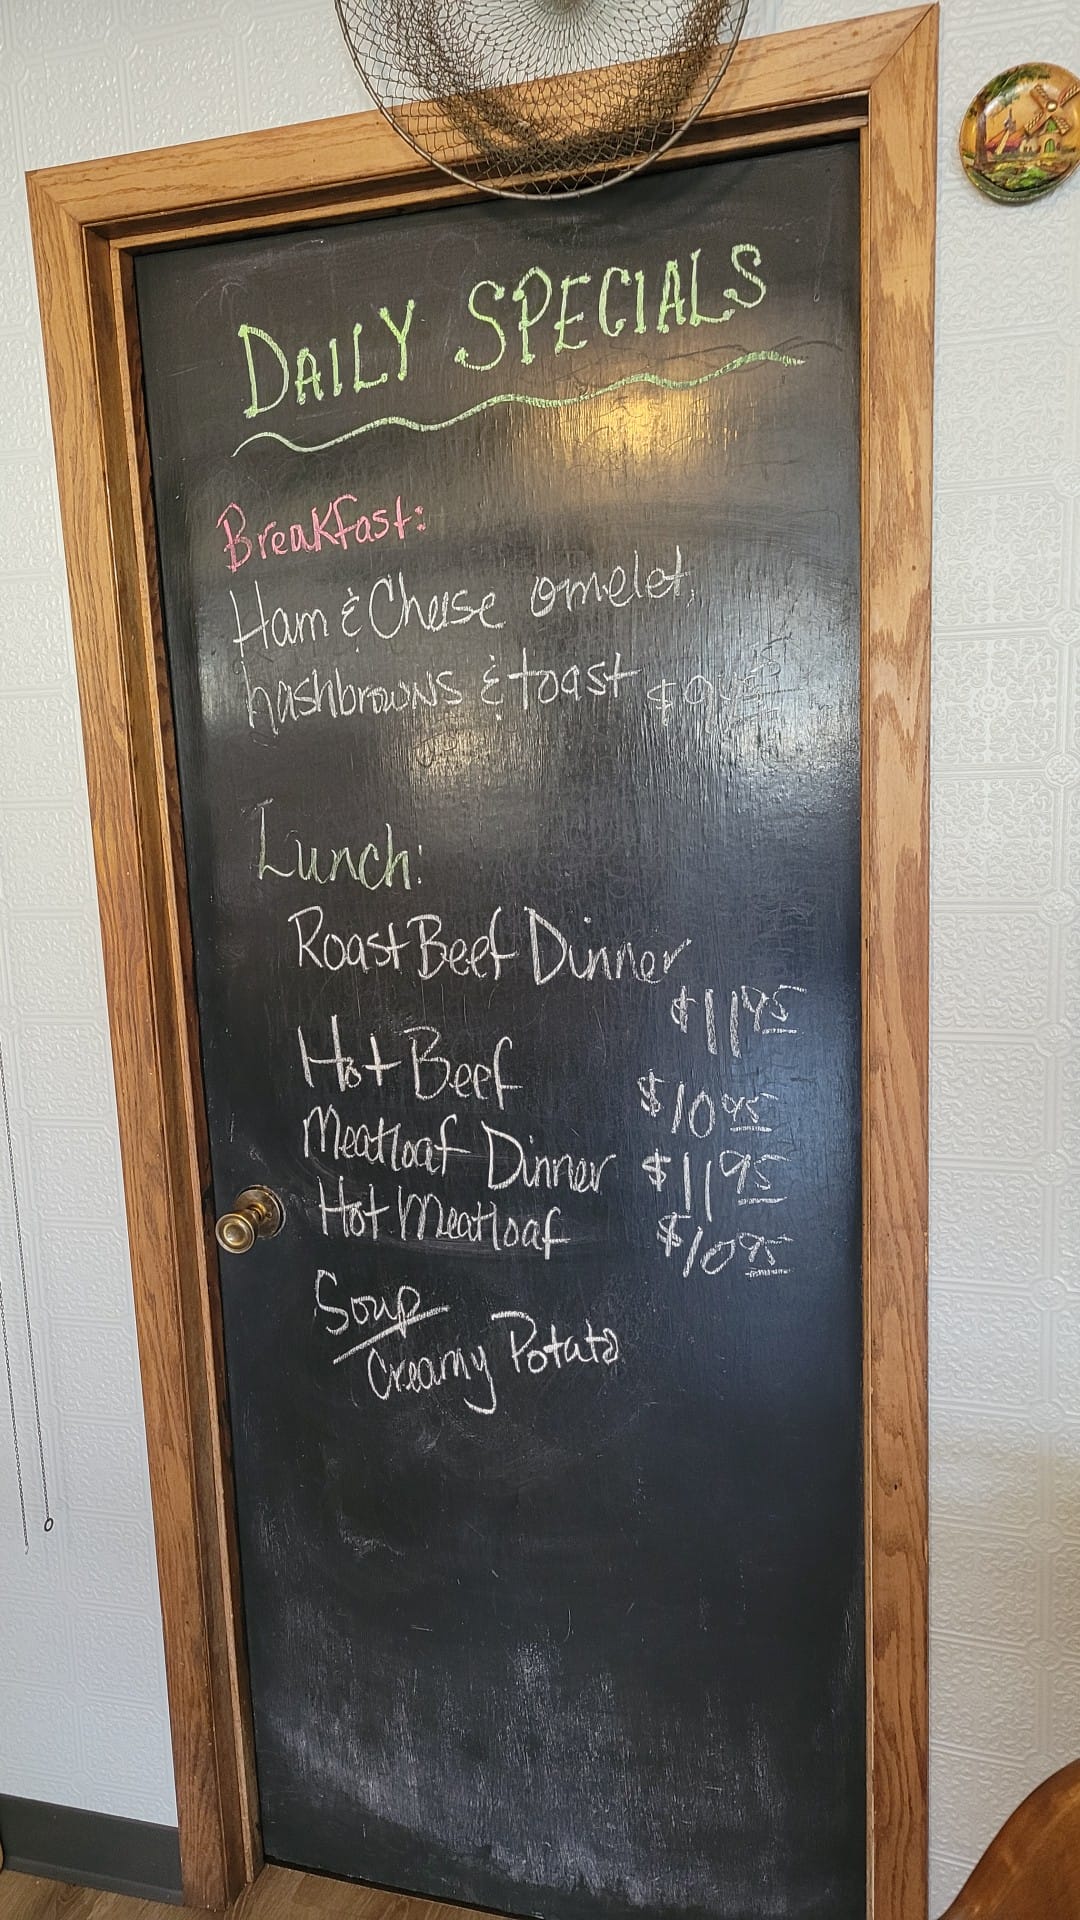 DAILY SPECIALS
Breakfast:
Ham & Cheese omelet,
hashbrowns & toast
Lunch:
Roast Beef Dinner
$11 95
Hot Beef $10 95
Meatloaf Dinner $11 95
Hot Meatloaf $10 95
Soup
Creamy Potato